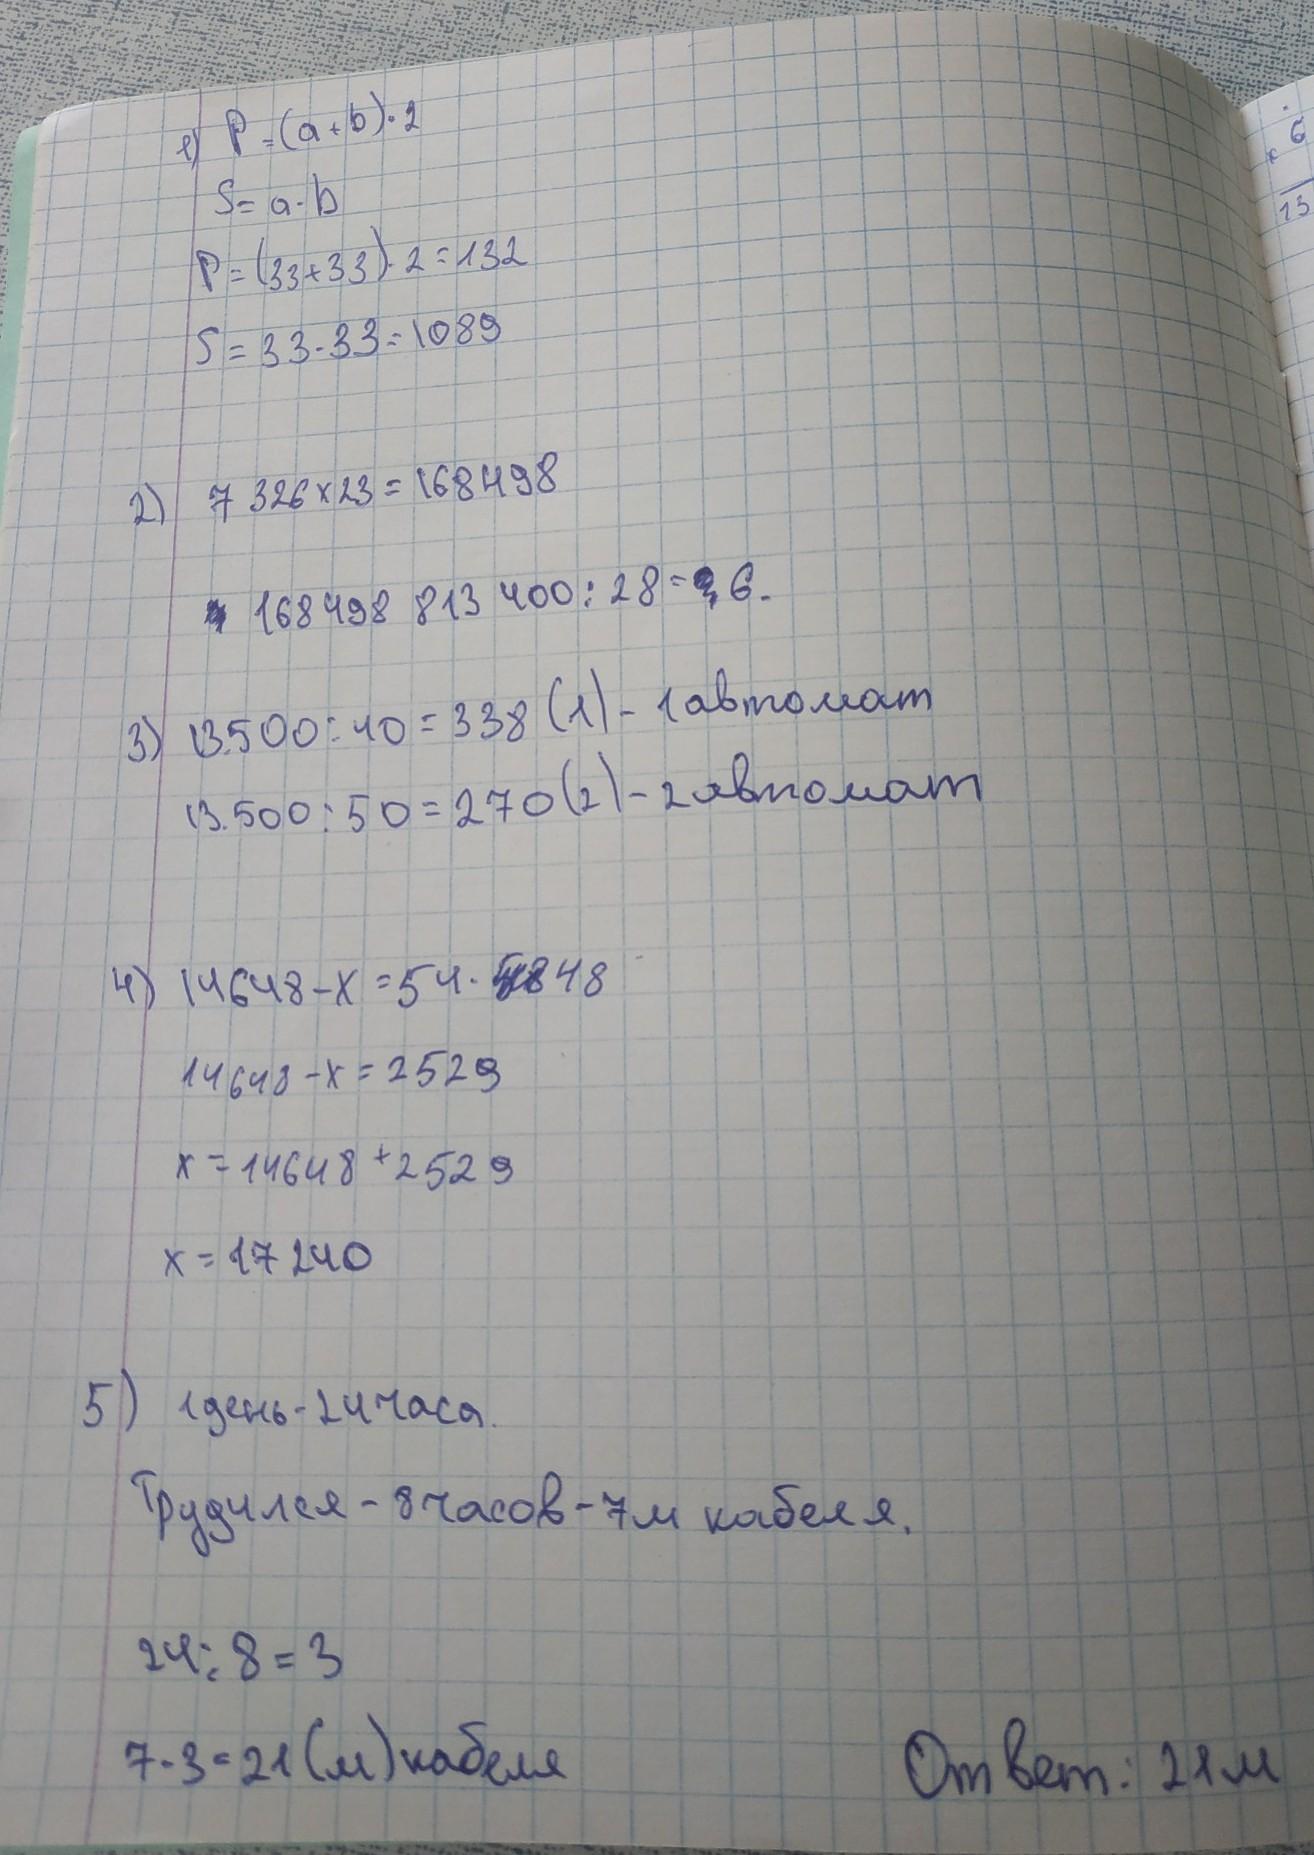 1) P=(a+b)·2
S=a·b
P=(33+33)·2=132
S=33·33=1089
2) 7 326×23=168498
168498 813 400:28= 6.
3) 13.500:40=338(1)-1автомат
13.500:50=270(2)-2автомат
4) 14648-x=54· 48
14648-x=2529
x=14648+2529
x=17240
5) 1день-24часа.
Трудился-8часов-7м кабеля.
24:8=3
7·3=21(м)кабеля
Ответ: 21м
× 6